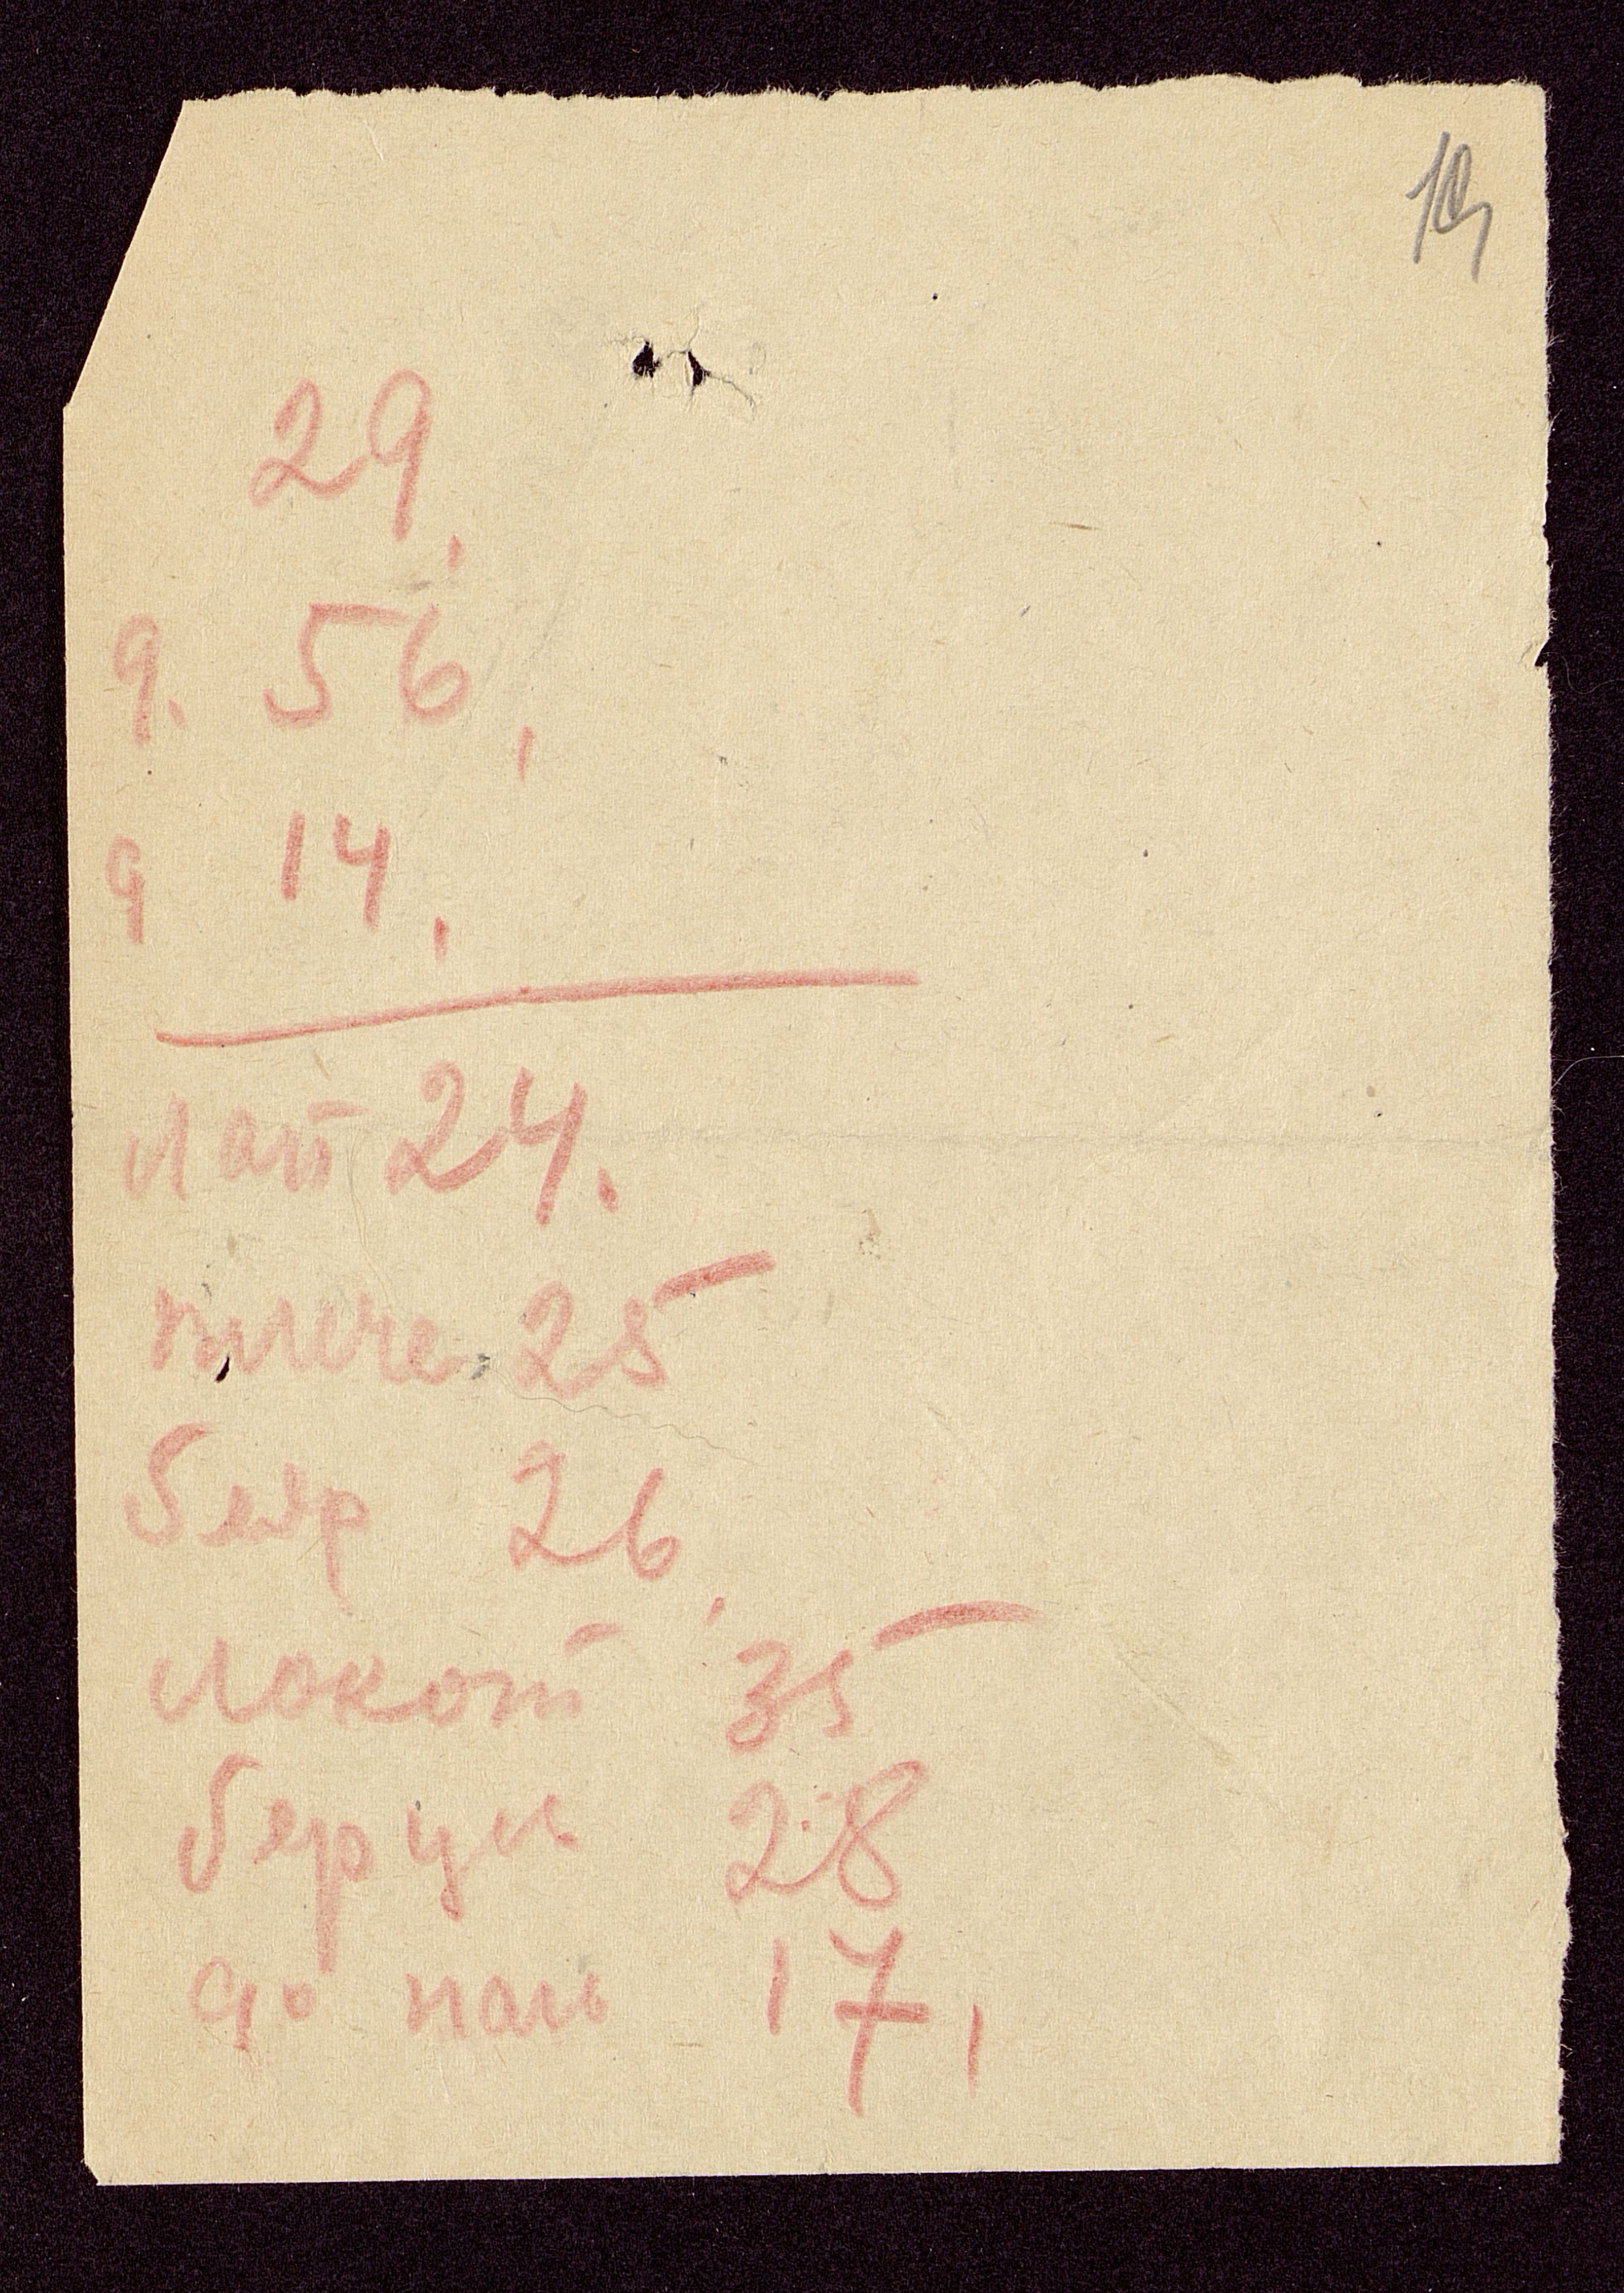 19
29,
д. 56,
д 14,
лап 24.
плече. 25
бедр 26,
локот 35
берцы 28
до паль 17,